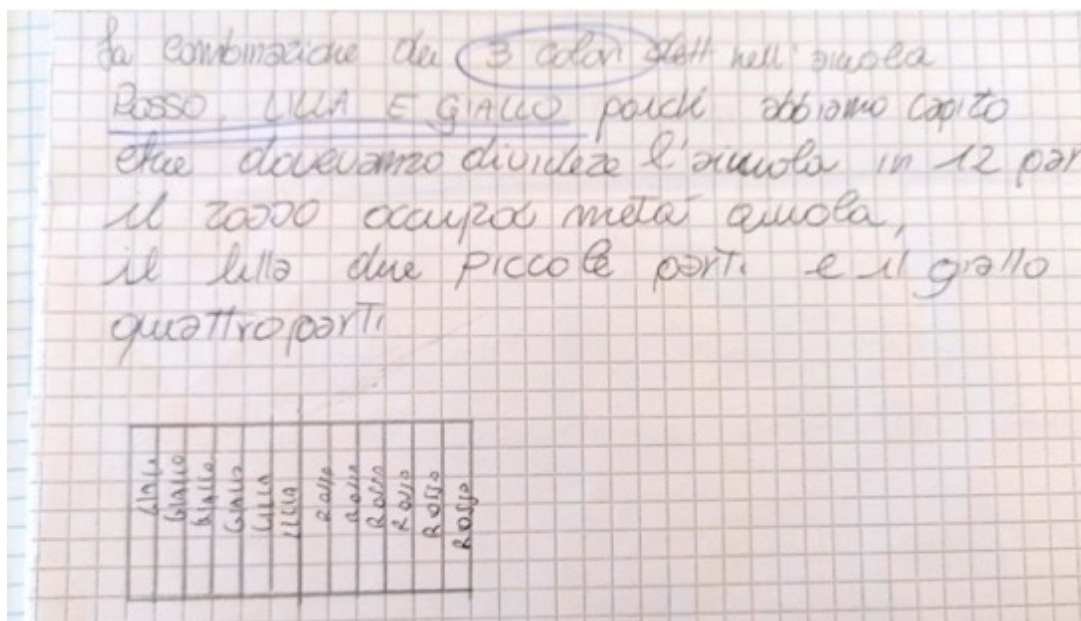 La combinazione dei 3 colori nell'aiuola
ROSSO, LILLA E GIALLO poiché abbiamo capito
che dovevamo dividere l'aiuola in 12 par
il rosso occupa metà aiuola,
il lilla due piccole parti e il giallo
quattro parti
GIALLO GIALLO GIALLO GIALLO LILLA LILLA ROSSO ROSSO ROSSO ROSSO ROSSO ROSSO